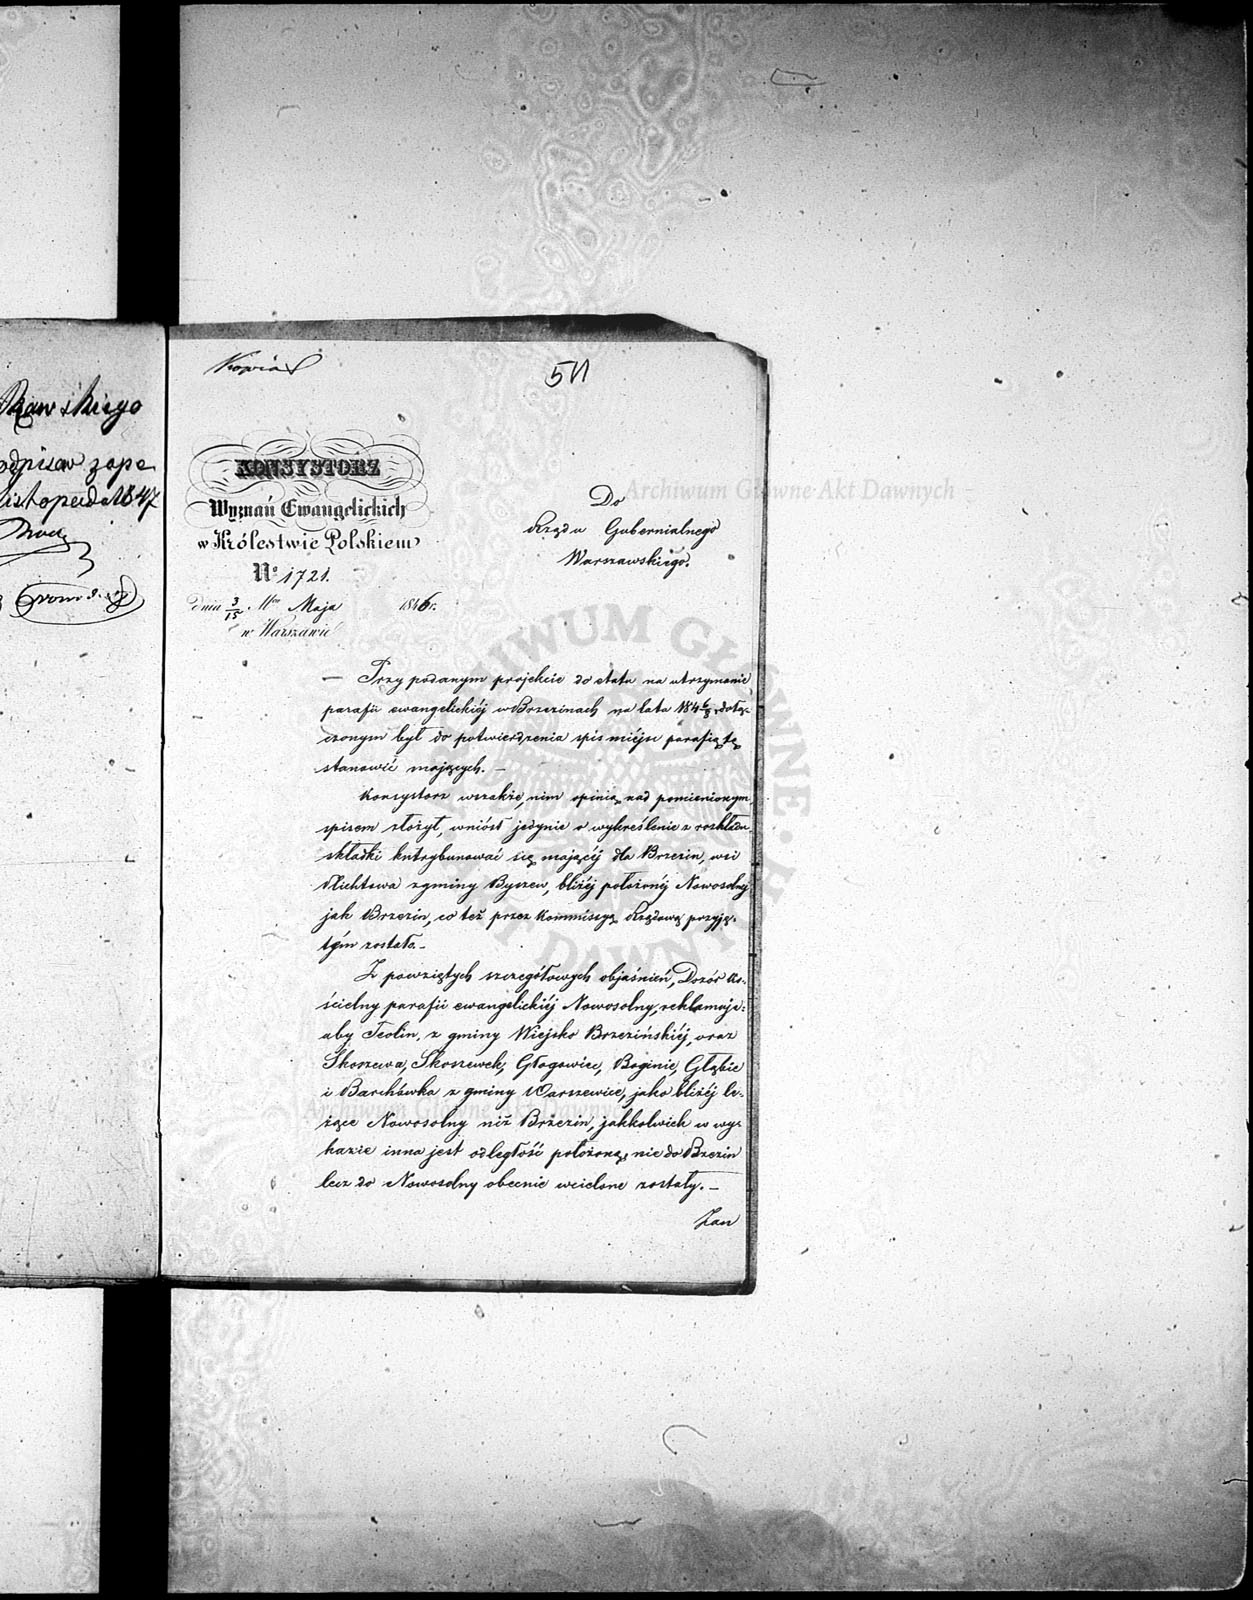 Rawskiego
podpisaw zape
listopada 1847
Kopia
511
KONSYSTORZ
Wyznań Ewangelickich
w Królestwie Polskiem
No 1721.
Dnia 3/15 Mca Maja 1846 r.
w Warszawie
Do
Rządu Gubernialnego
Warszawskiego.
— Przy podanym projekcie do etatu na utrzymanie
parafii ewangelickiéj w Brzezinach na lata 184 6/8, dołą-
czonym był do potwierdzenia spis miéjsc parafią tę
stanowić mających. —
Konsystorz wszakże, nim opinią nad pomienionym
spisem złożył, wniósł jedynie o wykreślenie z rozkładu
składki kntrybunować się mającéj dla Brzezin, wsi
Plichtowa z gminy Byszew, bliżéj położonéj Nowosolny
jak Brzezin, co też przez Kommissyą Rządową przyję-
tym zostało. —
Z powziętych szczegółowych objaśnień, Dozór Ko-
ścielny parafii ewangelickiéj Nowosolny, reklamuje
aby Teolin, z gminy Wiejsko Brzezińskiéj, oraz
Skoszewa, Skoszewek, Głogowiec, Boginie, Głąbie
i Barchówka z gminy Warszewice, jako bliżéj le-
żące Nowosolny niż Brzezin, jakkolwiek w wy-
kazie inna jest odległość położona, nie do Brzezin
lecz do Nowosolny obecnie wcielone zostały. —
Zan
Archiwum Główne Akt Dawnych
Archiwum Główne Akt Dawnych
ARCHIWUM GŁÓWNE AKT DAWNYCH